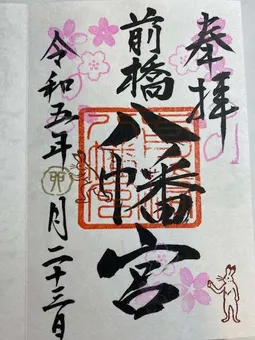 奉拝
前橋
八幡宮
令和五年 月二十三日
卯